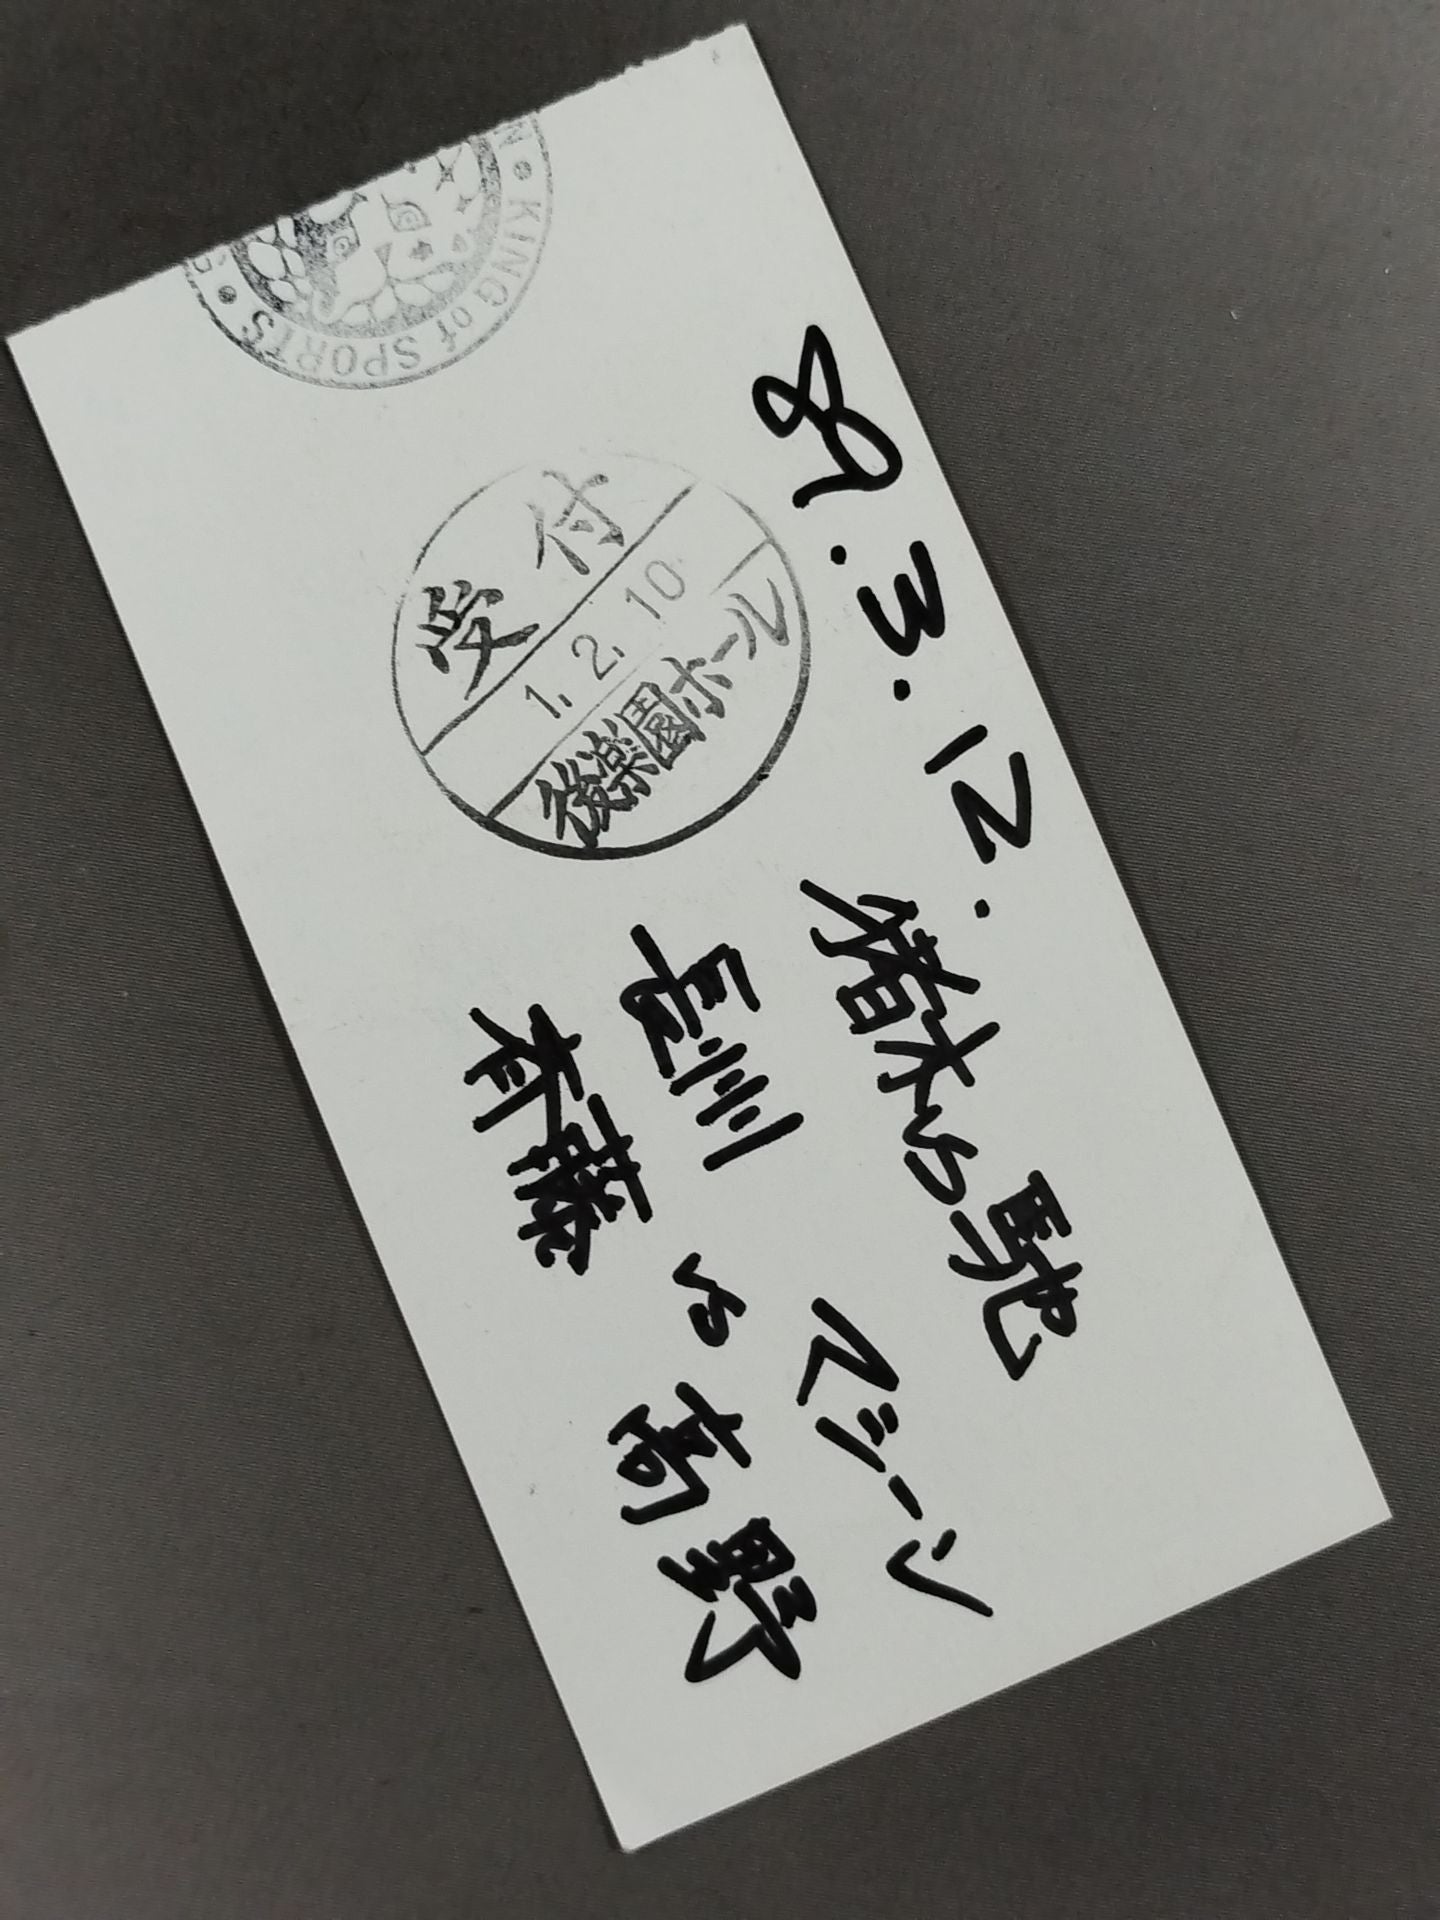 • KING of SPORTS •
受付
1.2.10
後楽園ホール
89.3.12.
猪木vs馳
マシーン
長州
斉藤 vs 高野